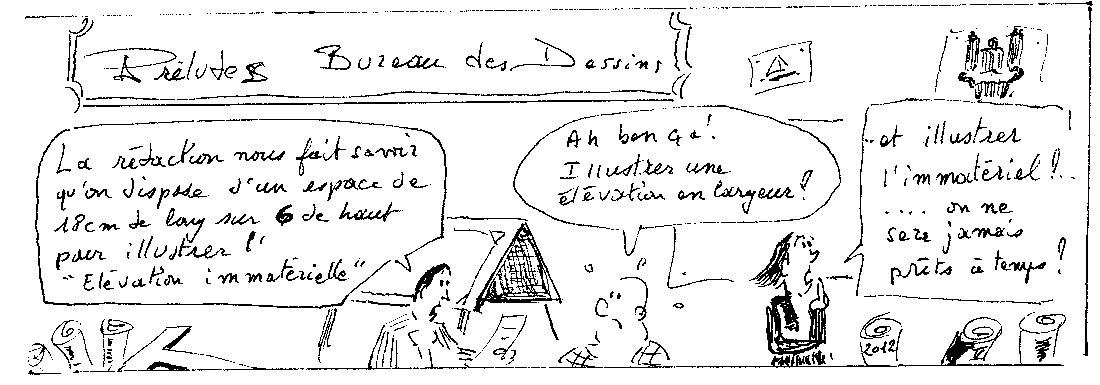 Préludes Bureau des Dessins
La rédaction nous fait savoir
qu'on dispose d'un espace de
18cm de long sur 6 de haut
pour illustrer l'
"Elévation immatérielle"
Ah ben ça!
Illustrer une
élévation en largeur?
..et illustrer
l'immatériel!..
.... on ne
sera jamais
prêts à temps!
2012